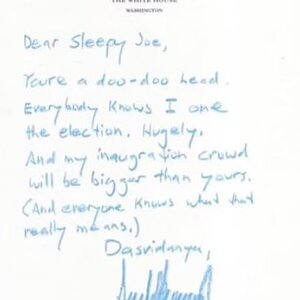 THE WHITE HOUSE
WASHINGTON
Dear Sleepy Joe,
You're a doo-doo head.
Everybody knows I one
the election. Hugely.
And my inaugration crowd
will be bigger than yours.
(And everyone knows what that
really means.)
Dasvidanya,